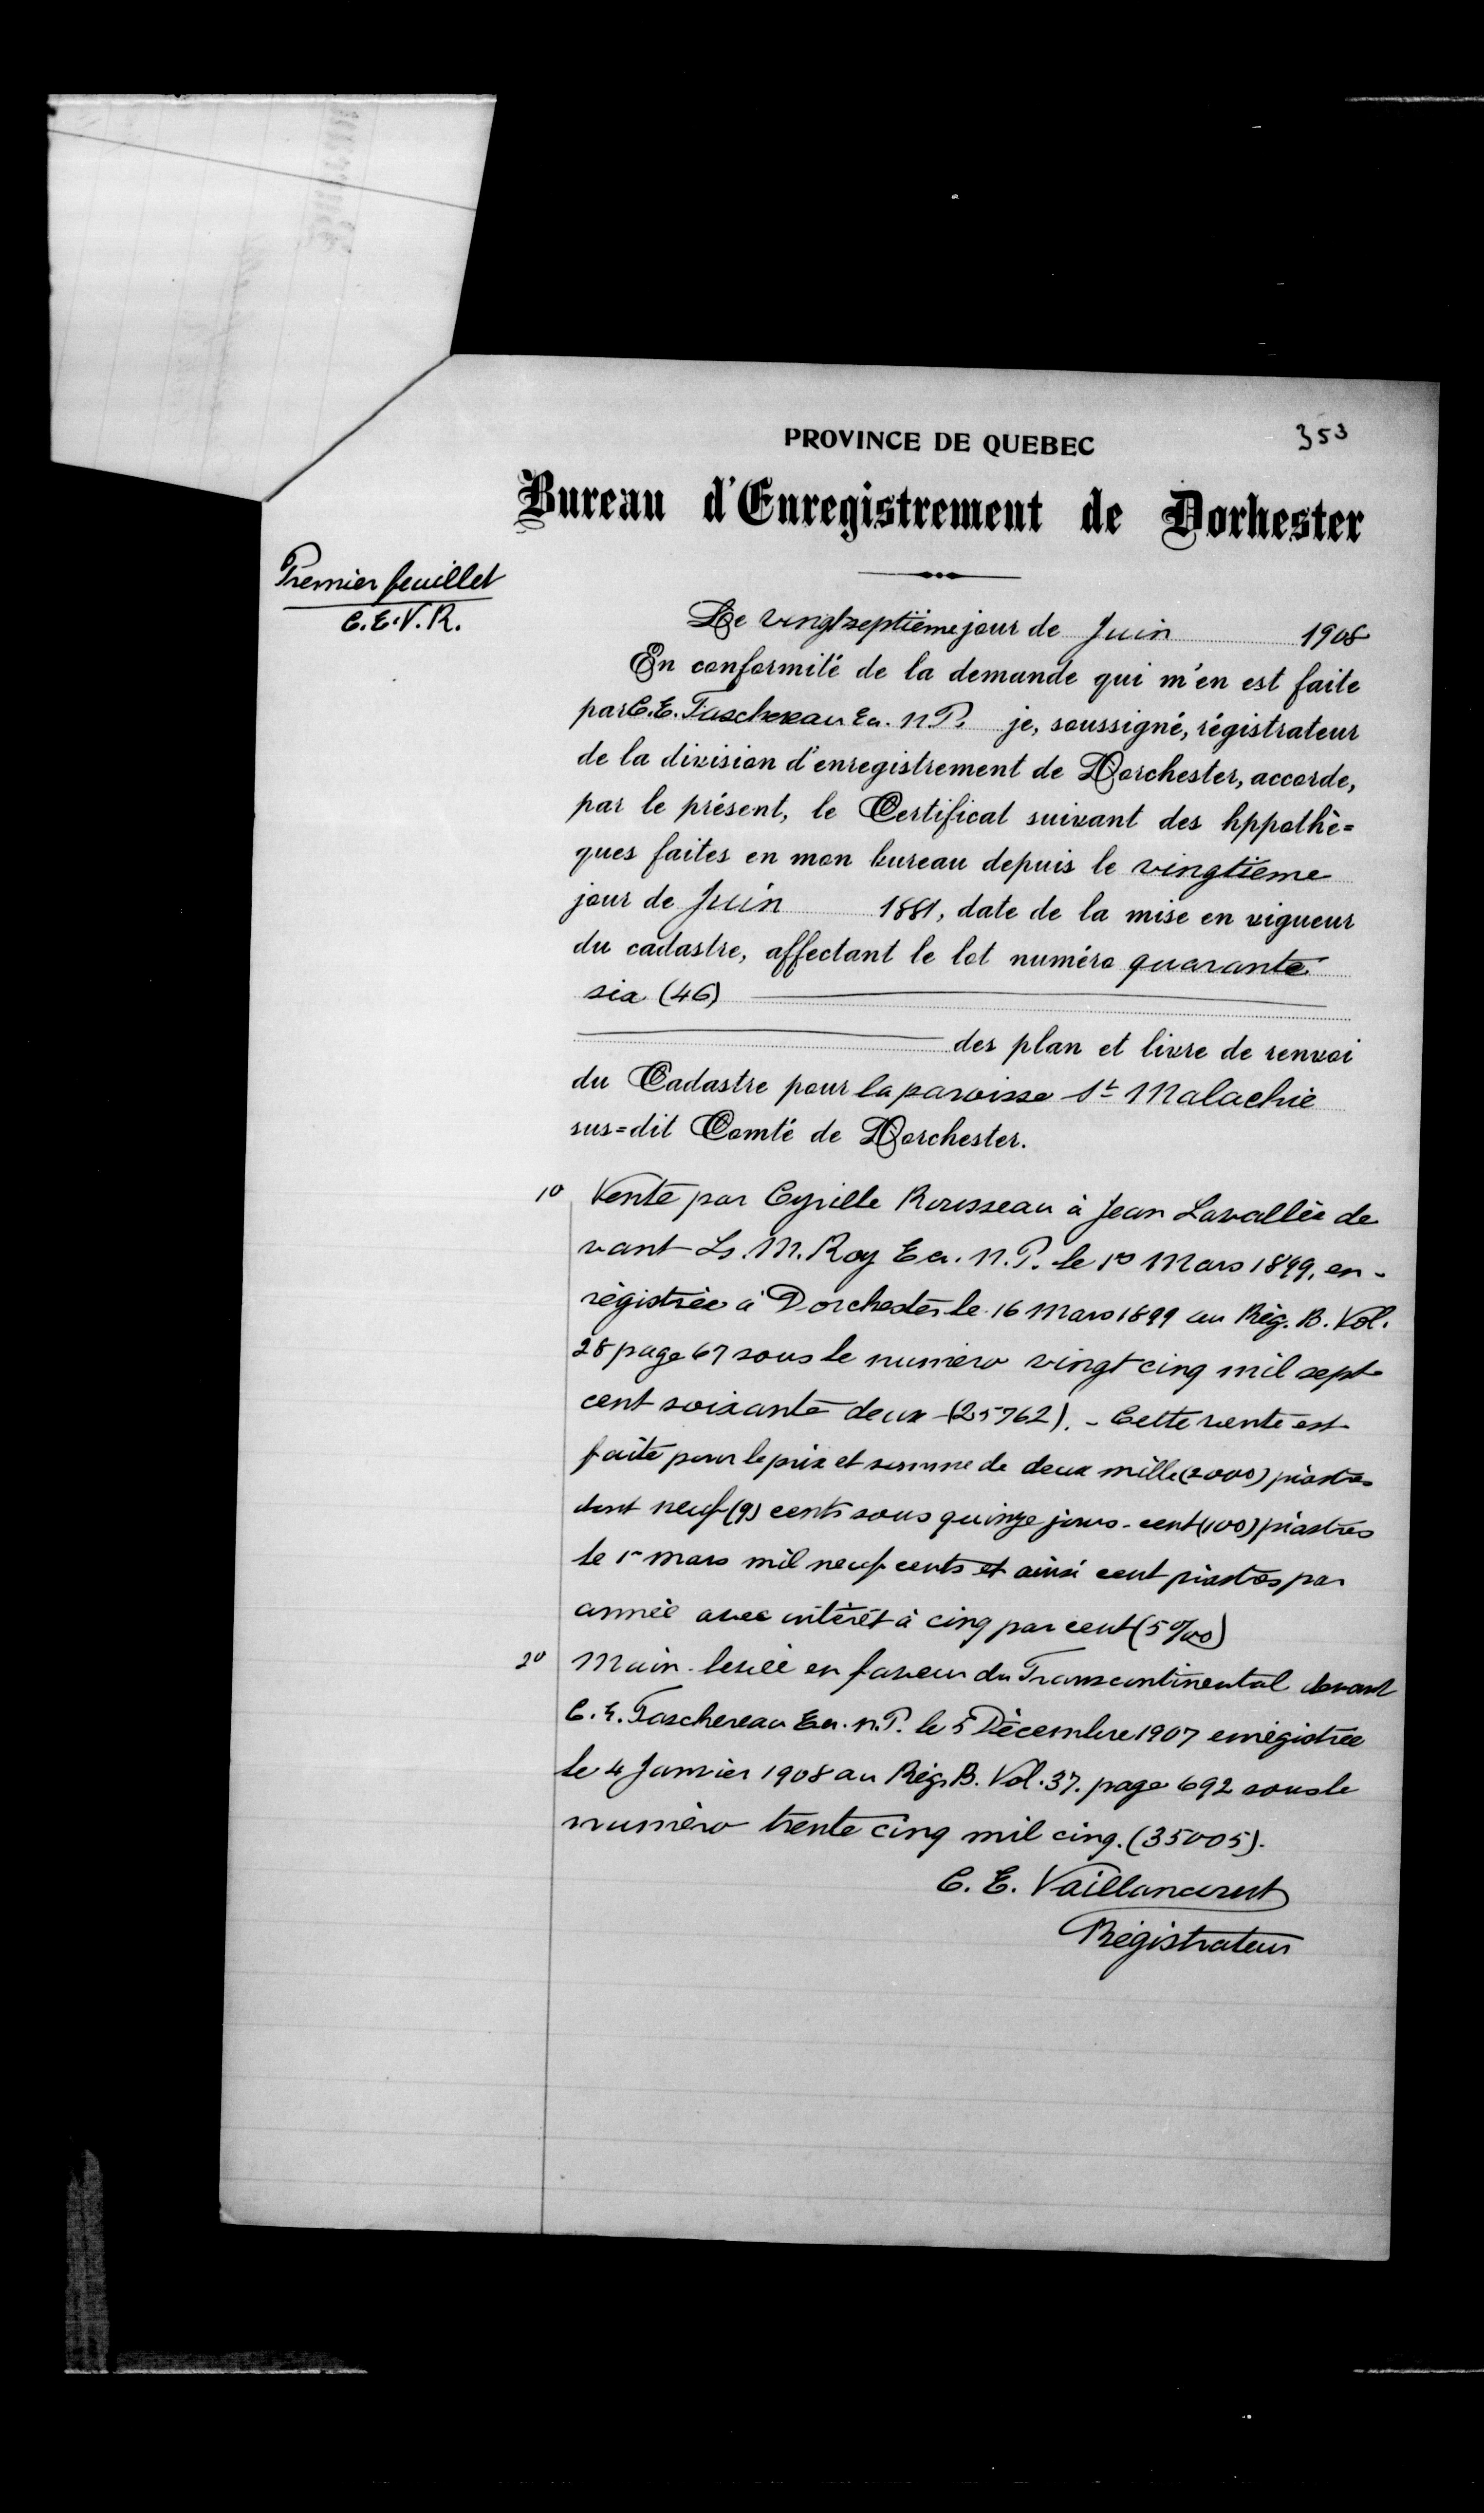 PROVINCE DE QUEBEC
353
Bureau d'Enregistrement de Dorhester
Premier feuillet
C.E.V.R.
Le vingt septième jour de Juin 1908
En conformité de la demande qui m'en est faite
par C.E. Taschereau Ec. N.P. je, soussigné, régistrateur
de la division d'enregistrement de Dorchester, accorde,
par le présent, le Certificat suivant des hppothè=
ques faites en mon bureau depuis le vingtième
jour de Juin 1881, date de la mise en vigueur
du cadastre, affectant le lot numéro quarante
six (46)
des plan et livre de renvoi
du Cadastre pour la paroisse St Malachie
sus=dit Comté de Dorchester.
1o Vente par Cyrille Rousseau à Jean Lavallée de
vant Ls. M. Roy Ec. N.P. le 1er Mars 1899, en-
régistrée à Dorchester le 16 Mars 1899 au Rég. B. Vol.
28 page 67 sous le numéro vingt cinq mil sept
cent soixante deux (25762). - Cette vente est
faite pour le prix et somme de deux mille (2000) piastres
dont neuf (9) cents sous quinze jours - cent (100) piastres
le 1er mars mil neuf cents et ainsi cent piastres par
année avec intérêt à cinq par cent (5%)
2o Main-levée en faveur du Transcontinental devant
C.E. Taschereau Ec. N.P. le 5 Décembre 1907 enrégistrée
le 4 Janvier 1908 au Rég. B. Vol. 37. page 692 sous le
numéro trente cinq mil cinq. (35005).
C. E. Vaillancourt
Régistrateur